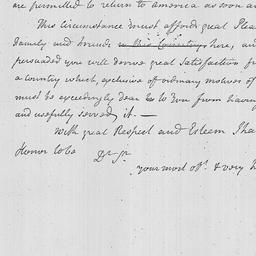 are permitted to return to America as soon as
This circumstance must afford great Plea
Family and friends in this Country here, and
persuaded you will derive great Satisfaction f
a country which, exclusive of ordinary motives of
must be exceedingly dear to You from having
and usefully served it. —
With great Respect and Esteem I ha
Honor to be
Dr. Sr.
your most obt. & very h